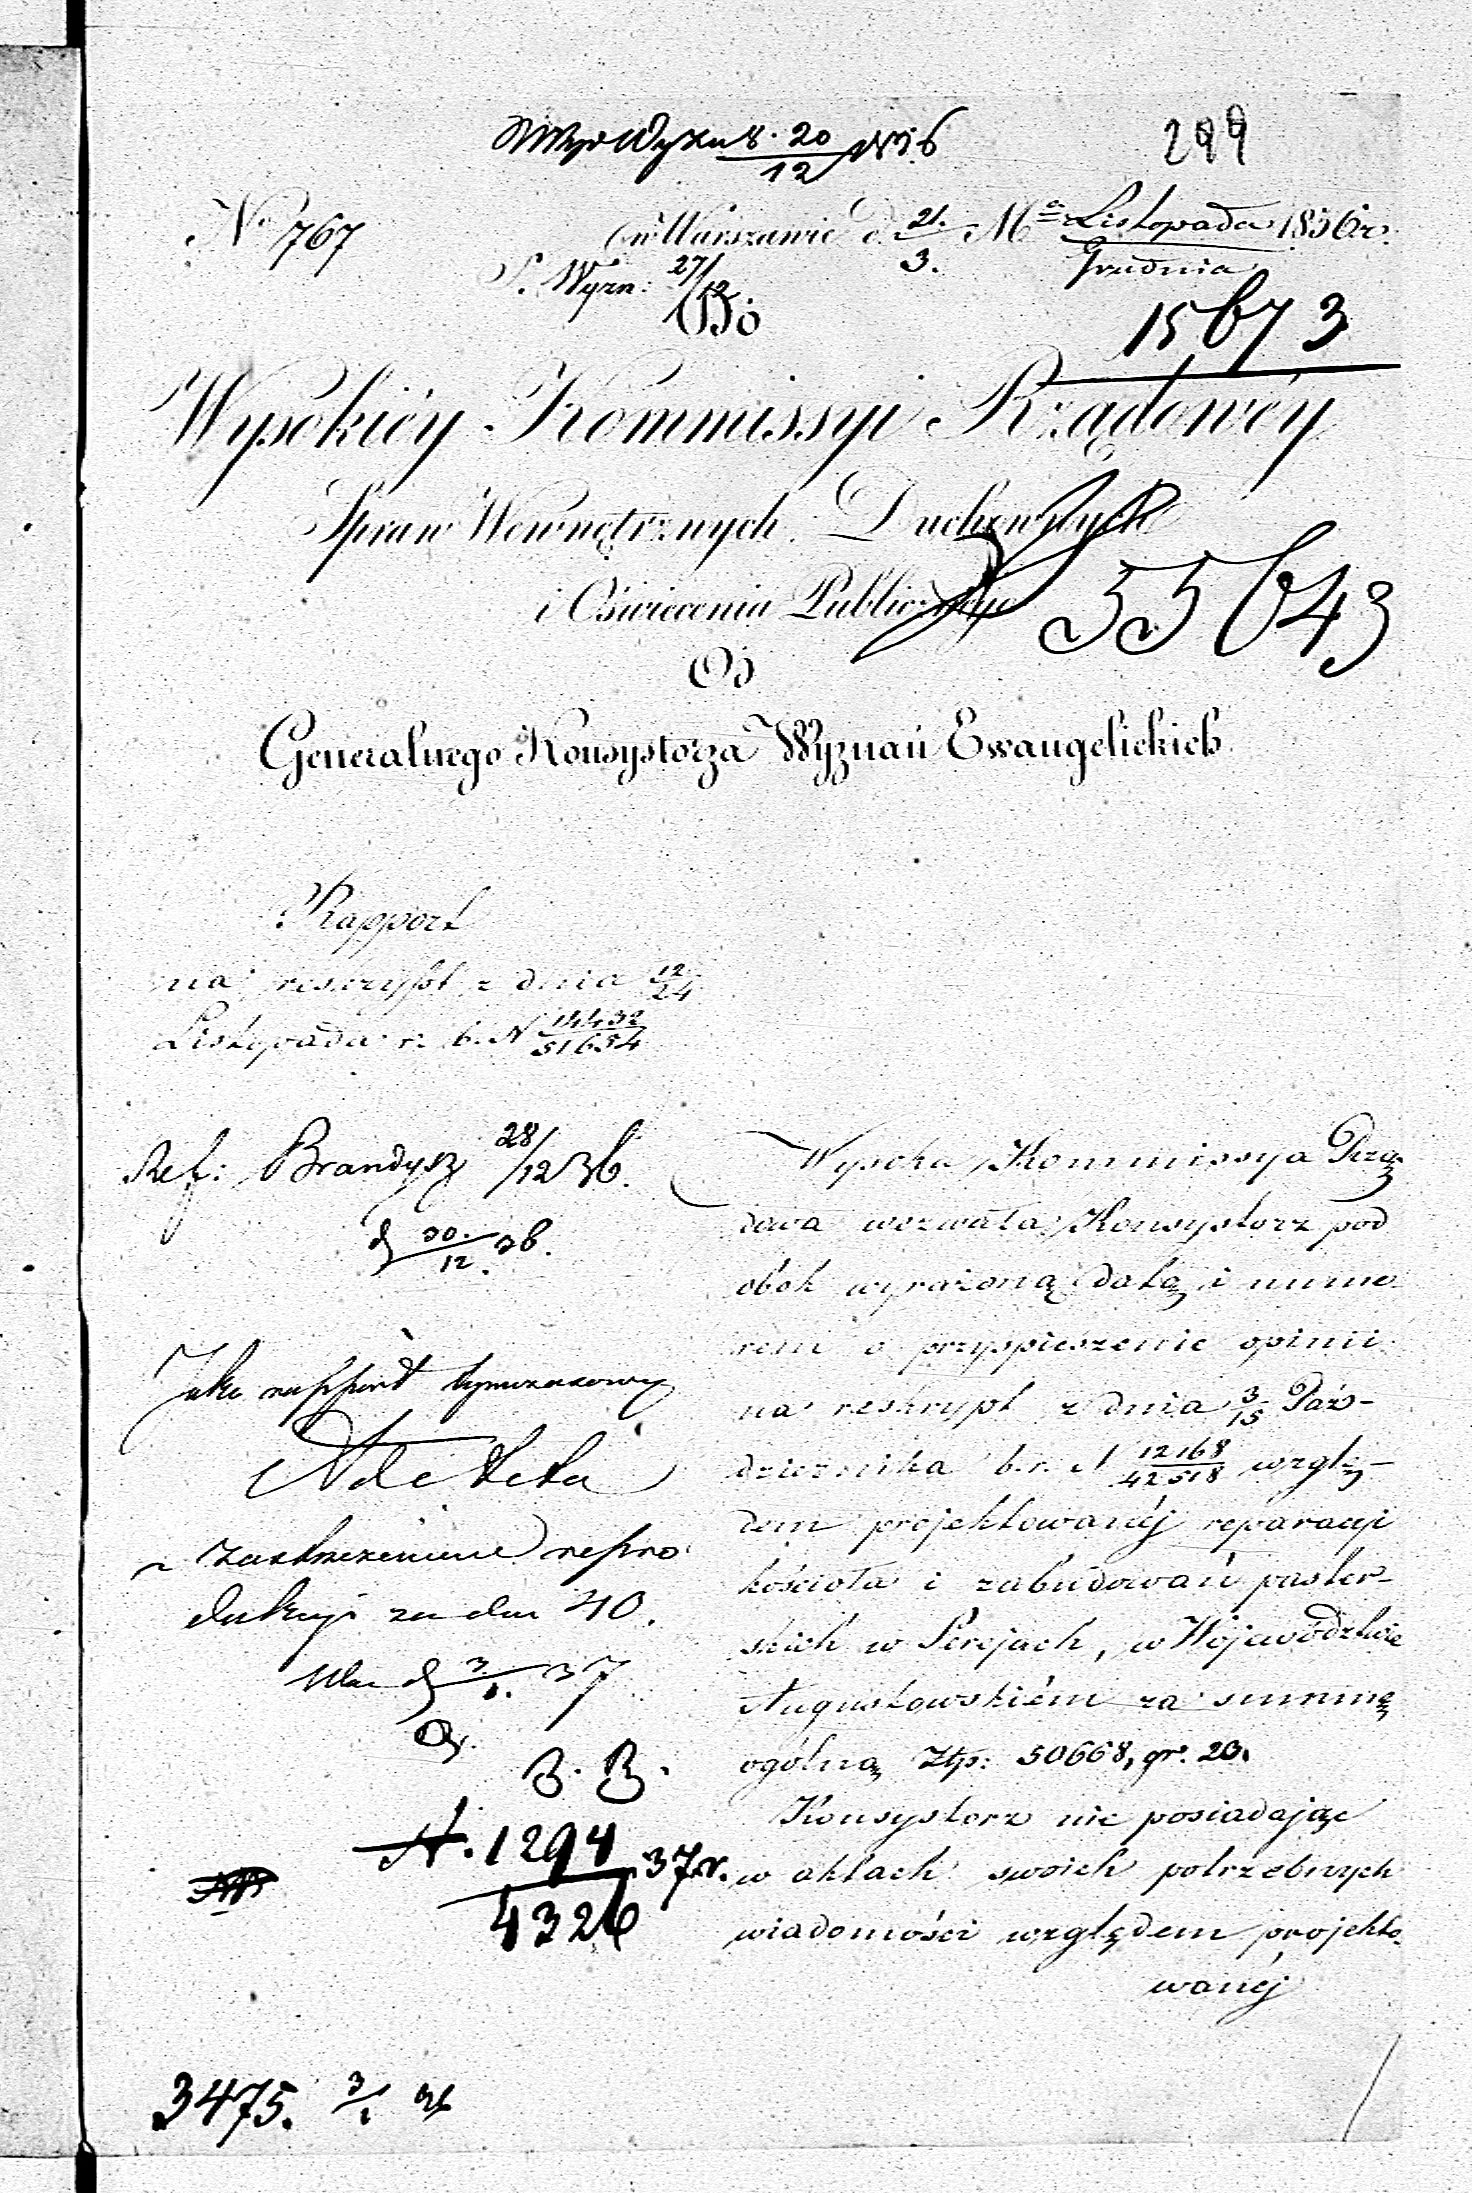 299
N 767
w Warszawie d. 21./3. M^ca Listopada/Grudnia 1836 r.
S. Wyzn: 27/12
Do
15673
Wysokiéy Kommissyi Rządowéy
Spraw Wewnętrznych, Duchownych
i Oświecenia Publicznego
55643
Od
Generalnego Konsystorza Wyznań Ewangelickich
Rapport
na reskrypt z dnia 12/24
Listopada r. b. N 14432/51654
Ref: Brandysz 28/12 36.
d 30./12. 36.
Jako rapport tymczasowy
Ad acta
z zastrzeżeniem repro
dukcyi za dni 40.
d 3/1. 37
B. B.
N. 1294/4326 37 r.
3475. 3/1
Wysoka Kommissya Rzą
dowa wezwała Konsystorz pod
obok wyrażoną datą i nume
rem o przyspieszenie opinii
na reskrypt z dnia 3/15 Paź-
dziernika b. r. N 12168/42518 wzglę-
dem projektowanéj reparacyi
kościoła i zabudowań paster-
skich w Serejach, w Województwie
Augustowskiém za summę
ogólną Złp: 50668, gr. 20.
Konsystorz nie posiadając
w aktach swoich potrzebnych
wiadomości względem projekto-
wanéj